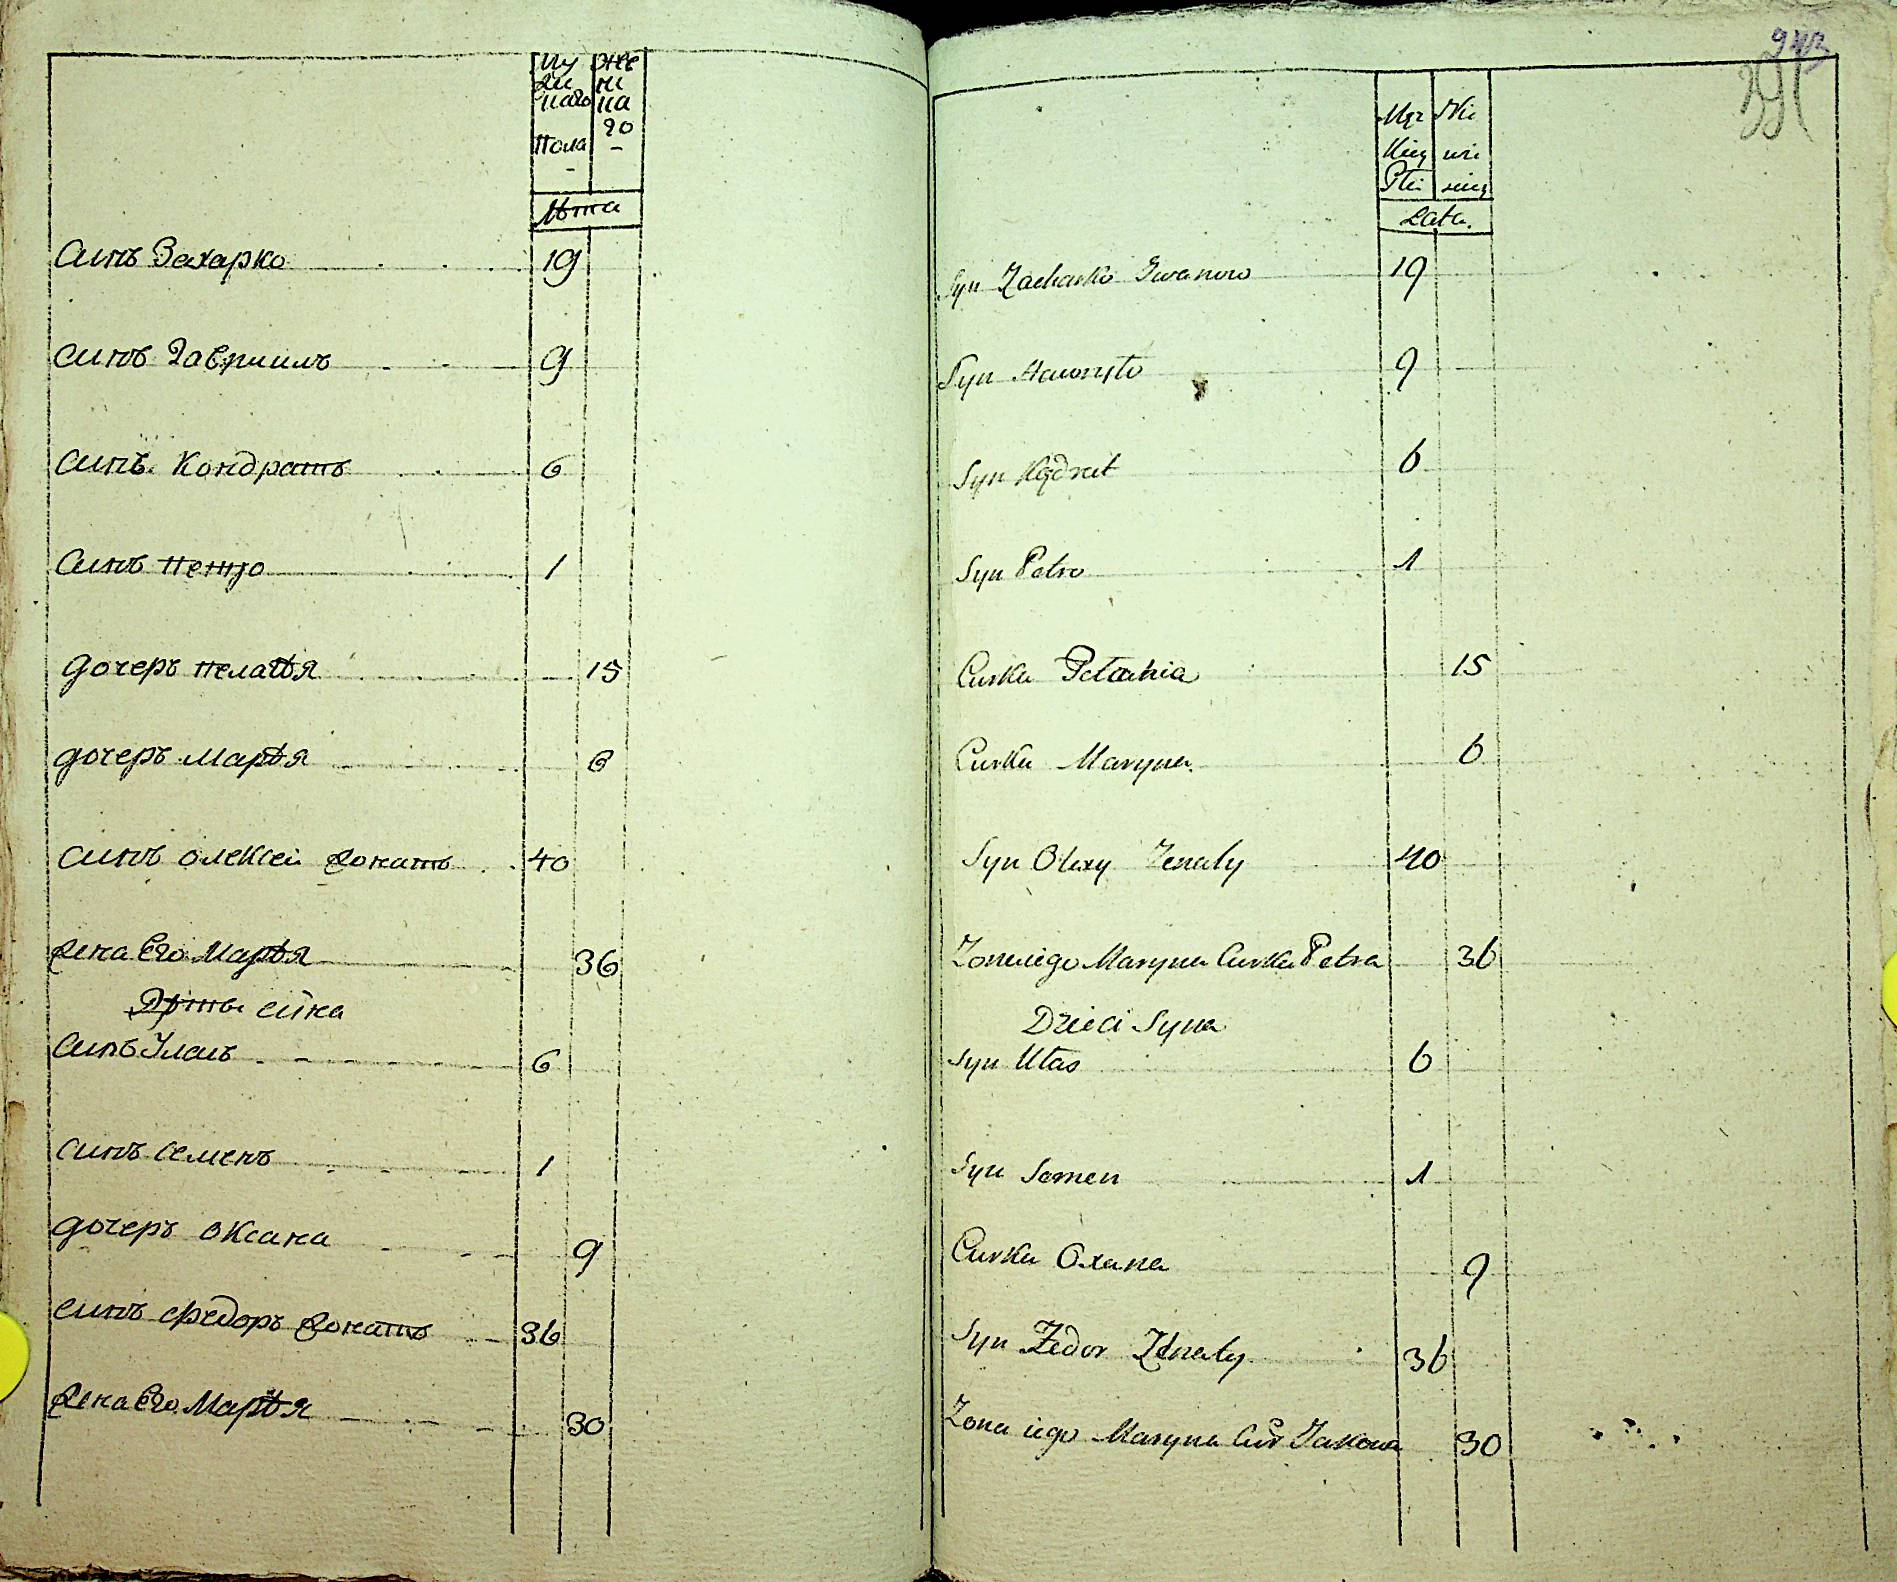 Му Же
жи ни
наго на
го
Пола -
-
Лѣта
Синъ Захарко 19
синъ Гавриилъ 9
синъ Кондратъ 6
Синъ петро 1
дочеръ пелагѣя 15
дочеръ Марѣя 6
Синъ олексеи жонатъ 40
жена Его Марѣя 36
Дѣти сина
Синъ Уласъ 6
синъ семенъ 1
дочеръ оксана 9
синъ федоръ жонатъ 36
жена Его Марѣя 30
942
391
Męz Nie
Kiey wie
Płci sciey
Lata.
Syn Zacharko Iwanow 19
Syn Hawryło 9
Syn Kądrat 6
Syn Petro 1
Curka Pełahia 15
Curka Maryna 6
Syn Olexy Zenaty 40
Zona iego Maryna Curka Petra 36
Dzieci Syna
Syn Ułas 6
Syn Semen 1
Curka Oxana 9
Syn Fedor Zenaty 36
Zona iego Maryna Cur Jakowa 30